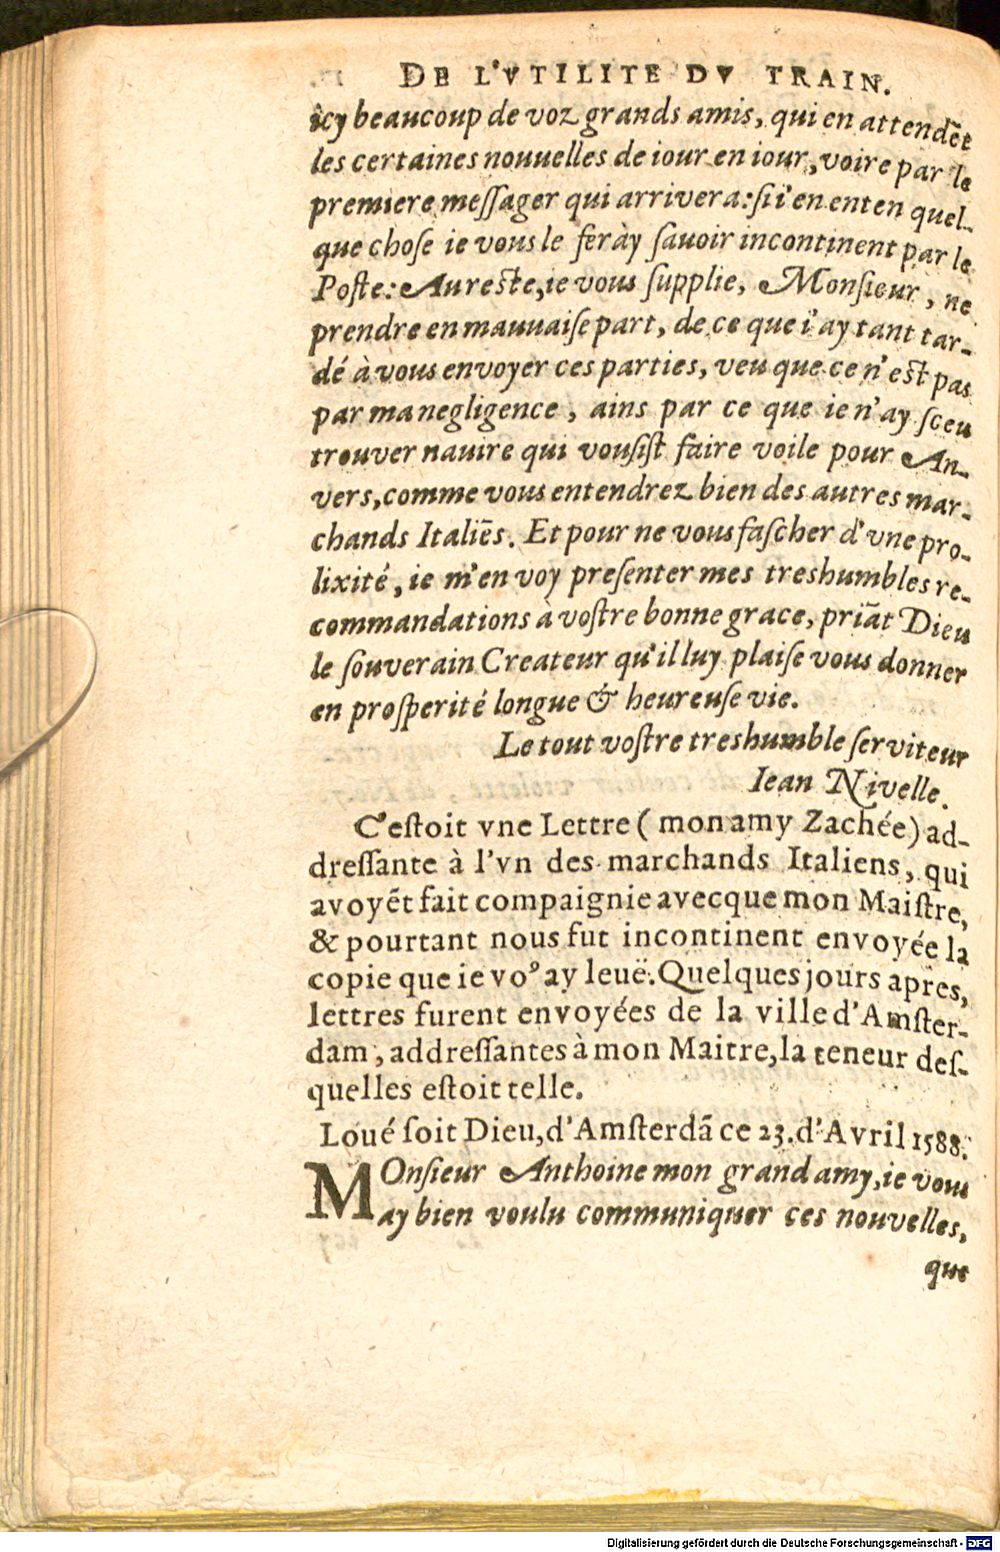 DE L'VTILITE DV TRAIN.
icy beaucoup de voz grands amis, qui en attendēt
les certaines nouuelles de iour en iour, voire par le
premiere meſſager qui arrivera: ſi i'en enten quel-
que choſe ie vous le feray ſauoir incontinent par le
Poſte: Au reſte, ie vous ſupplie, Monſieur, ne
prendre en mauuaiſe part, de ce que i'ay tant tar-
dé à vous envoyer ces parties, veu que ce n'eſt pas
par ma negligence, ains par ce que ie n'ay ſceu
trouver nauire qui vouſiſt faire voile pour An-
vers, comme vous entendrez bien des autres mar-
chands Italiēs. Et pour ne vous faſcher d'vne pro-
lixité, ie m'en voy preſenter mes treshumbles re-
commandations à voſtre bonne grace, priāt Dieu
le ſouverain Createur qu'il luy plaiſe vous donner
en proſperité longue & heureuſe vie.
Le tout voſtre treshumble ſerviteur
Iean Nivelle.
C'eſtoit vne Lettre ( mon amy Zachée) ad-
dreſſante à l'vn des marchands Italiens, qui
avoyēt fait compaignie avecque mon Maiſtre,
& pourtant nous fut incontinent envoyée la
copie que ie voꝰ ay leuë. Quelques jours apres,
lettres furent envoyées de la ville d'Amſter-
dam, addreſſantes à mon Maitre, la teneur deſ-
quelles eſtoit telle.
Loué ſoit Dieu, d'Amſterdā ce 23. d'Avril 1588.
MOnſieur Anthoine mon grand amy, ie vous
ay bien voulu communiquer ces nouvelles,
que
Digitalisierung gefördert durch die Deutsche Forschungsgemeinschaft - DFG